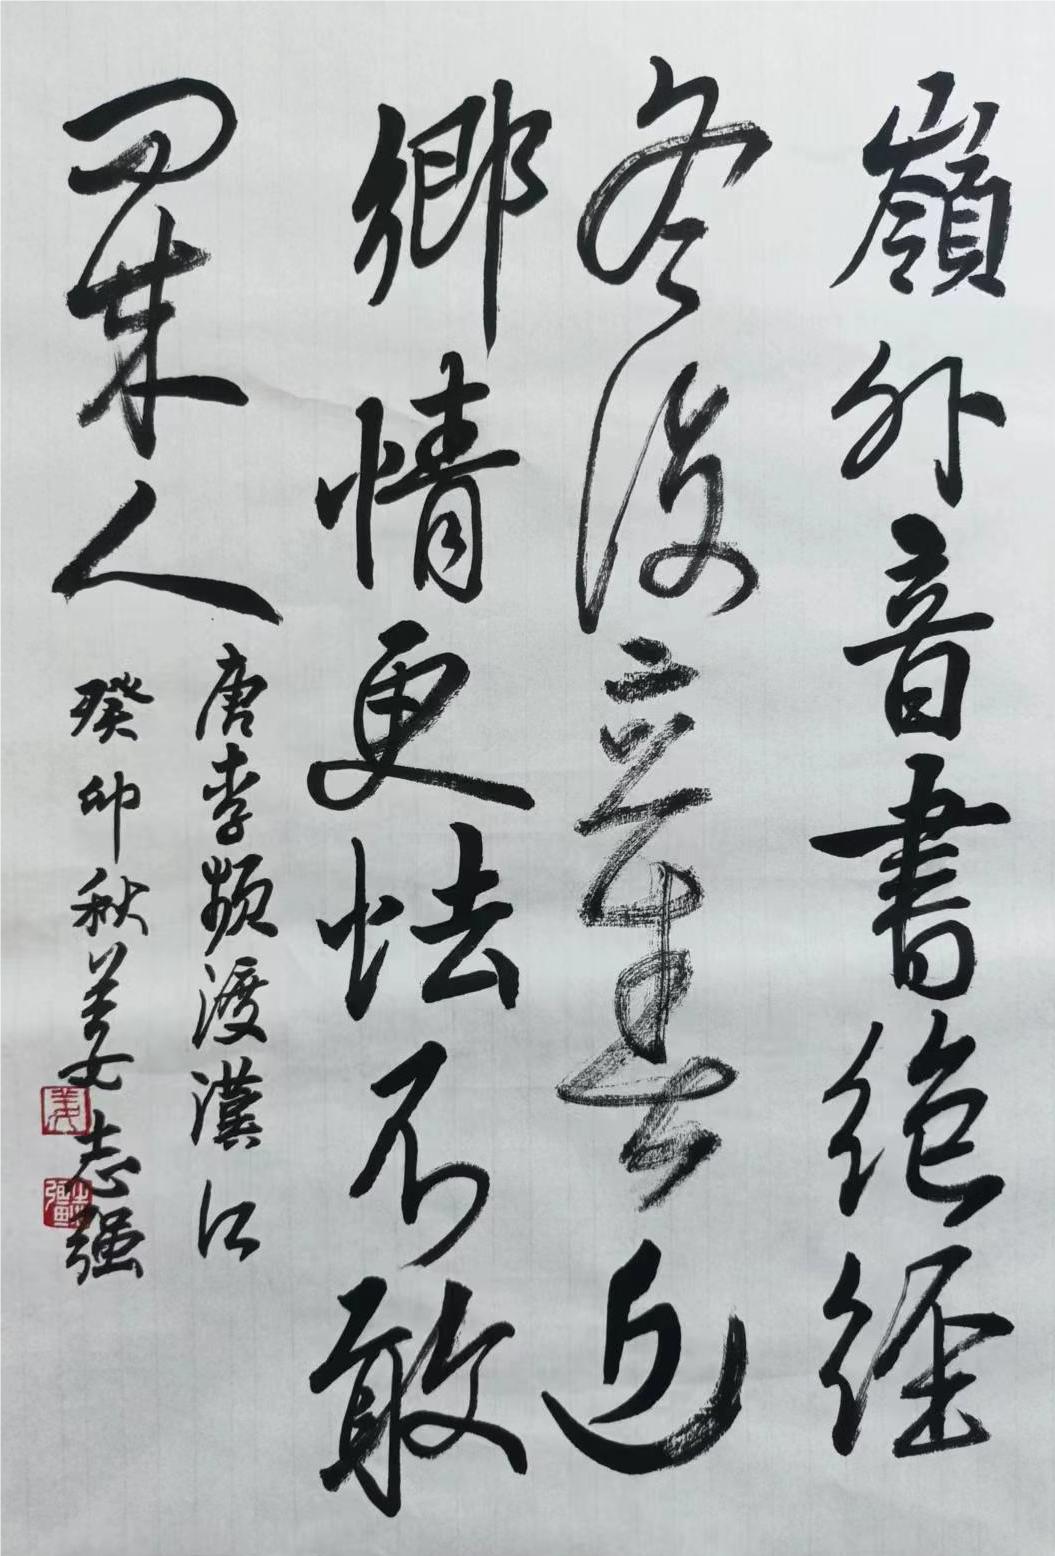 嶺外音書絶經
冬復立春近
鄉情更怯不敢
問来人
唐李頻渡漢江
癸卯秋姜志强
姜
志强